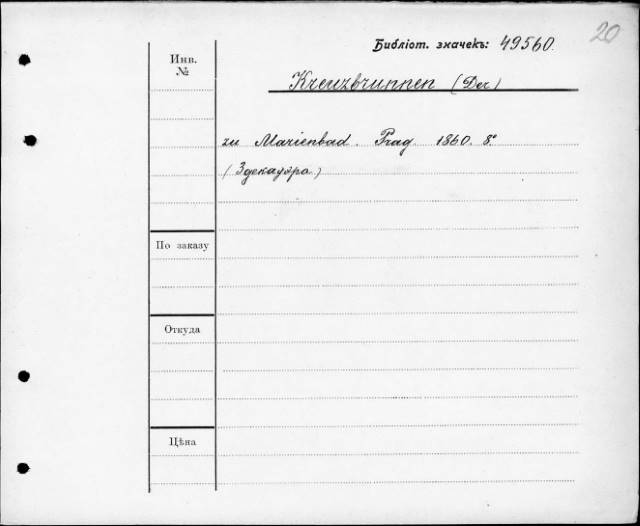 20
Библіот. значекъ: 49560.
Инв.
№
Kreuzbrunnen (Der)
zu Marienbad. Prag. 1860. 8°
(Здекауэра.)
По заказу
Откуда
Цѣна